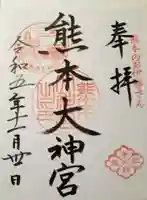 奉拝
熊本大神宮
令和五年十一月卅日